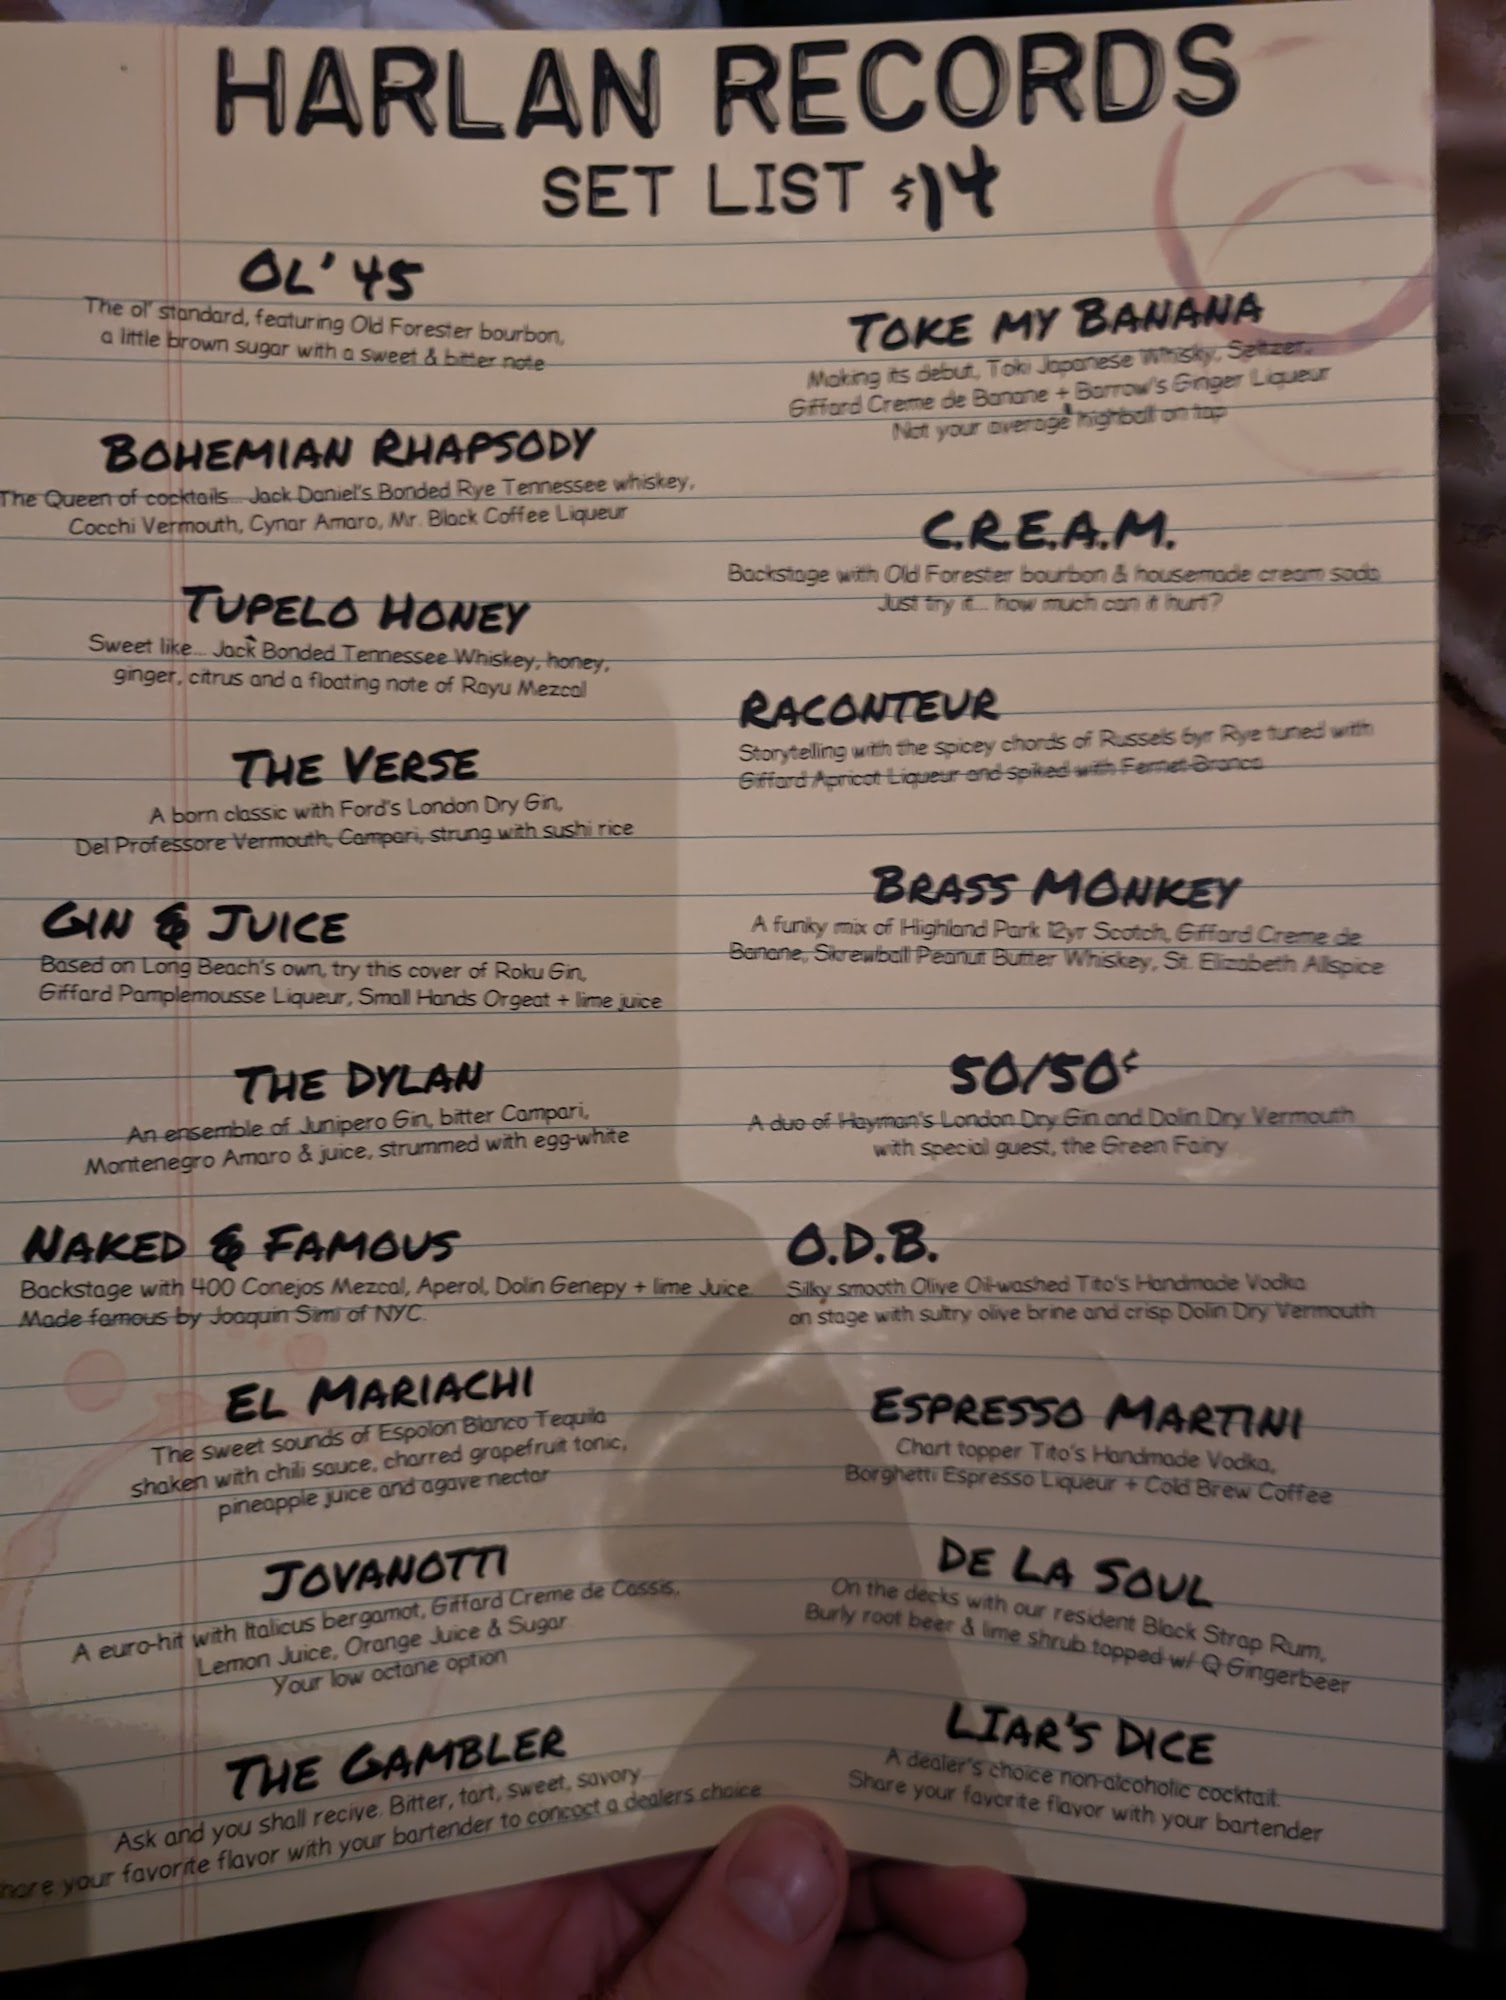 HARLAN RECORDS
SET LIST $14
OL' 45
The ol' standard, featuring Old Forester bourbon,
a little brown sugar with a sweet & bitter note
BOHEMIAN RHAPSODY
The Queen of cocktails... Jack Daniel's Bonded Rye Tennessee whiskey,
Cocchi Vermouth, Cynar Amaro, Mr. Black Coffee Liqueur
TUPELO HONEY
Sweet like... Jack Bonded Tennessee Whiskey, honey,
ginger, citrus and a floating note of Rayu Mezcal
THE VERSE
A born classic with Ford's London Dry Gin,
Del Professore Vermouth, Campari, strung with sushi rice
GIN & JUICE
Based on Long Beach's own, try this cover of Roku Gin,
Giffard Pamplemousse Liqueur, Small Hands Orgeat + lime juice
THE DYLAN
An ensemble of Junipero Gin, bitter Campari,
Montenegro Amaro & juice, strummed with egg-white
NAKED & FAMOUS
Backstage with 400 Conejos Mezcal, Aperol, Dolin Genepy + lime Juice.
Made famous by Joaquin Simi of NYC.
EL MARIACHI
The sweet sounds of Espolon Blanco Tequila
shaken with chili sauce, charred grapefruit tonic,
pineapple juice and agave nectar
JOVANOTTI
A euro-hit with Italicus bergamot, Giffard Creme de Cassis,
Lemon Juice, Orange Juice & Sugar
Your low octane option
THE GAMBLER
Ask and you shall recive. Bitter, tart, sweet, savory...
your favorite flavor with your bartender to concoct a dealers choice
TOKE MY BANANA
Making its debut, Toki Japanese Whisky, Seltzer,
Giffard Creme de Banane + Barrow's Ginger Liqueur
Not your average highball on tap
C.R.E.A.M.
Backstage with Old Forester bourbon & housemade cream soda
Just try it... how much can it hurt?
RACONTEUR
Storytelling with the spicey chords of Russels 6yr Rye tuned with
Giffard Apricot Liqueur and spiked with Fernet-Branca
BRASS MONKEY
A funky mix of Highland Park 12yr Scotch, Giffard Creme de
Banane, Skrewball Peanut Butter Whiskey, St. Elizabeth Allspice
50/50¢
A duo of Hayman's London Dry Gin and Dolin Dry Vermouth
with special guest, the Green Fairy
O.D.B.
Silky smooth Olive Oil-washed Tito's Handmade Vodka
on stage with sultry olive brine and crisp Dolin Dry Vermouth
ESPRESSO MARTINI
Chart topper Tito's Handmade Vodka,
Borghetti Espresso Liqueur + Cold Brew Coffee
DE LA SOUL
On the decks with our resident Black Strap Rum,
Burly root beer & lime shrub topped w/ Q Gingerbeer
LIAR'S DICE
A dealer's choice non-alcoholic cocktail.
Share your favorite flavor with your bartender